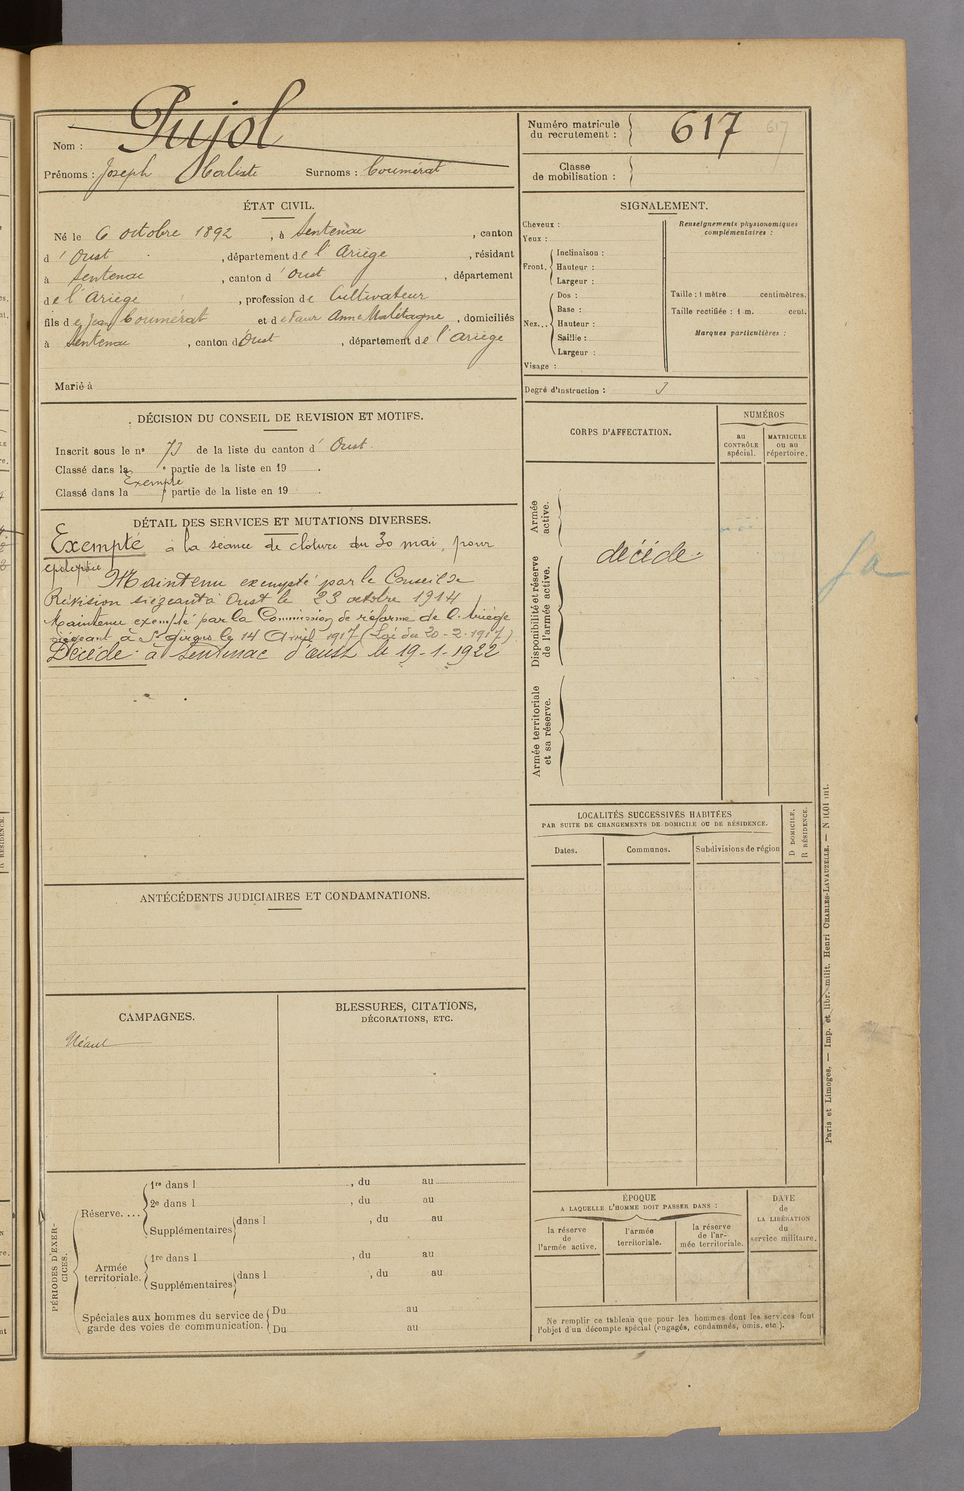 Nom : Pujol
Prénoms : Joseph Calixte Surnoms : Coumérat
Numéro matricule du recrutement : 617
617
Classe de mobilisation :
ÉTAT CIVIL.
Né le 6 octobre 1892, à Sentenac, canton
d'Oust, département de l'Ariège, résidant
à Sentenac, canton d'Oust, département
de l'Ariège, profession de Cultivateur
fils de Jean Coumérat et de Faur Anne, domiciliés
à Sentenac, canton d'Oust, département de l'Ariège
Marié à
SIGNALEMENT.
Cheveux :
Yeux :
Front. Inclinaison :
Hauteur :
Largeur :
Nez... Dos :
Base :
Hauteur :
Saillie :
Largeur :
Visage :
Renseignements physionomiques
complémentaires :
Taille : 1 mètre centimètres.
Taille rectifiée : 1 m. cent.
Marques particulières :
Degré d'instruction : 3
DÉCISION DU CONSEIL DE REVISION ET MOTIFS.
Inscrit sous le n° 73 de la liste du canton d'Oust.
Classé dans la e partie de la liste en 19 .
Exempté
Classé dans la e partie de la liste en 19 .
DÉTAIL DES SERVICES ET MUTATIONS DIVERSES.
Exempté à la séance de clôture du 30 mai, pour
épilepsie
Maintenu exempté par le Conseil de
Révision siégeant à Oust le 23 octobre 1914
Maintenu exempté par la Commission de réforme de l'Ariège
siégeant à St Girons le 14 Avril 1917 (Loi du 20-2-1917).
Décédé à Sentenac d'oust le 19-1-1922
CORPS D'AFFECTATION.
NUMÉROS
au CONTRÔLE spécial.
MATRICULE ou au répertoire.
Armée active.
décédé
Disponibilité et réserve de l'armée active.
Armée territoriale et sa réserve.
LOCALITÉS SUCCESSIVES HABITÉES
PAR SUITE DE CHANGEMENTS DE DOMICILE OU DE RÉSIDENCE.
Dates.
Communes.
Subdivisions de région
D DOMICILE.
R RÉSIDENCE.
ANTÉCÉDENTS JUDICIAIRES ET CONDAMNATIONS.
CAMPAGNES.
Néant
BLESSURES, CITATIONS,
DÉCORATIONS, ETC.
PÉRIODES D'EXERCICES.
Réserve. ... 1re dans l , du au
2e dans l , du au
Supplémentaires dans l , du au
Armée territoriale. 1re dans l , du au
Supplémentaires dans l , du au
Spéciales aux hommes du service de garde des voies de communication. Du au
Du au
ÉPOQUE
A LAQUELLE L'HOMME DOIT PASSER DANS :
la réserve de l'armée active.
l'armée territoriale.
la réserve de l'armée territoriale.
DATE de LA LIBÉRATION du service militaire.
Ne remplir ce tableau que pour les hommes dont les services font
l'objet d'un décompte spécial (engagés, condamnés, omis, etc.).
Paris et Limoges. — Imp. et libr. milit. Henri CHARLES-LAVAUZELLE. —